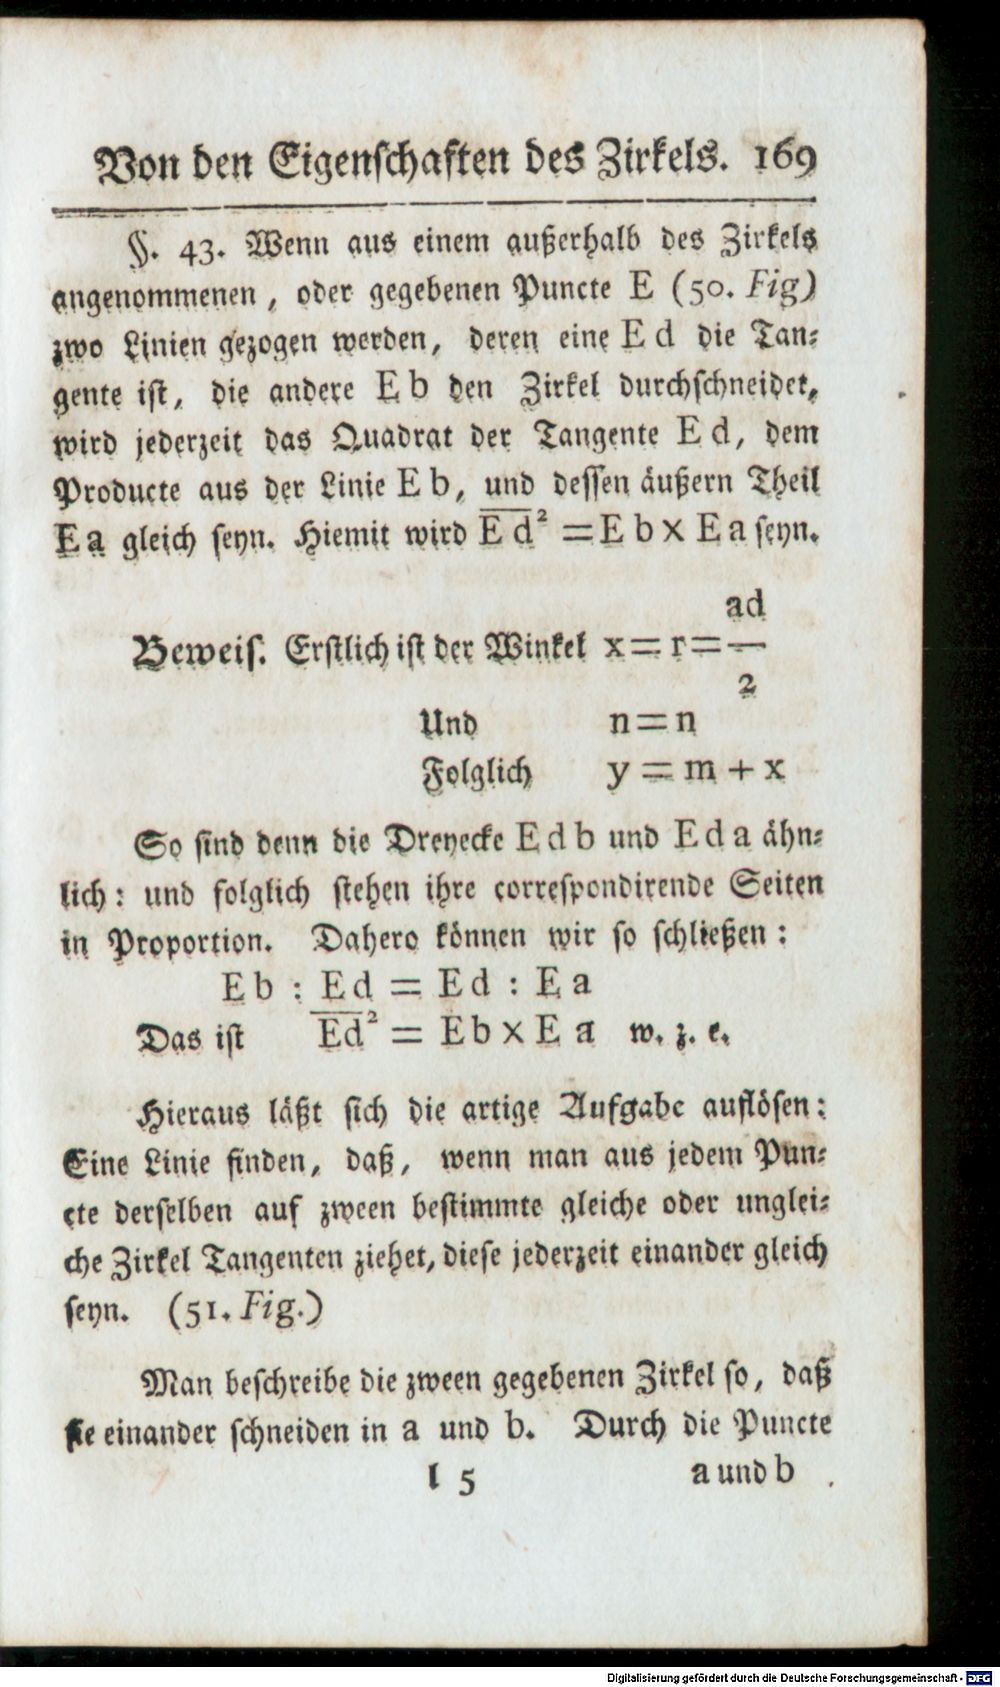 Von den Eigenschaften des Zirkels. 169
§. 43. Wenn aus einem außerhalb des Zirkels
angenommenen, oder gegebenen Puncte E (50. Fig)
zwo Linien gezogen werden, deren eine E d die Tan-
gente ist, die andere E b den Zirkel durchschneidet,
wird jederzeit das Quadrat der Tangente E d, dem
Producte aus der Linie E b, und dessen äußern Theil
E a gleich seyn. Hiemit wird E̅d̅² = E b × E a seyn.
Beweis. Erstlich ist der Winkel x = r = ad/2
Und n = n
Folglich y = m + x
So sind denn die Dreyecke E d b und E d a ähn-
lich: und folglich stehen ihre correspondirende Seiten
in Proportion. Dahero können wir so schließen:
E b : E d = E d : E a
Das ist E̅d̅² = E b × E a w. z. e.
Hieraus läßt sich die artige Aufgabe auflösen:
Eine Linie finden, daß, wenn man aus jedem Pun-
cte derselben auf zween bestimmte gleiche oder unglei-
che Zirkel Tangenten ziehet, diese jederzeit einander gleich
seyn. (51. Fig.)
Man beschreibe die zween gegebenen Zirkel so, daß
sie einander schneiden in a und b. Durch die Puncte
l 5 a und b
Digitalisierung gefördert durch die Deutsche Forschungsgemeinschaft - DFG